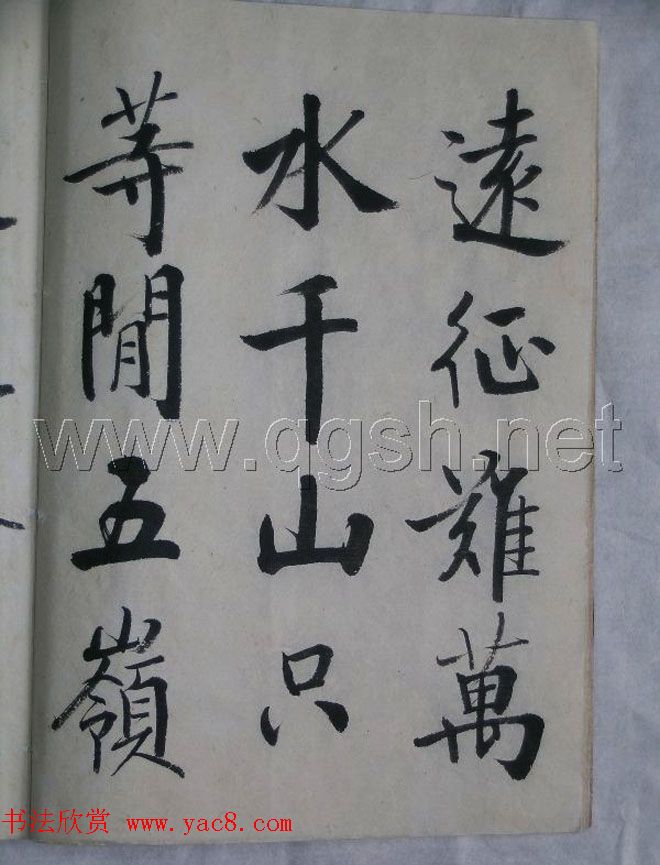 遠征難萬
水千山只
等閒五嶺
www.qgsh.net
书法欣赏 www.yac8.com